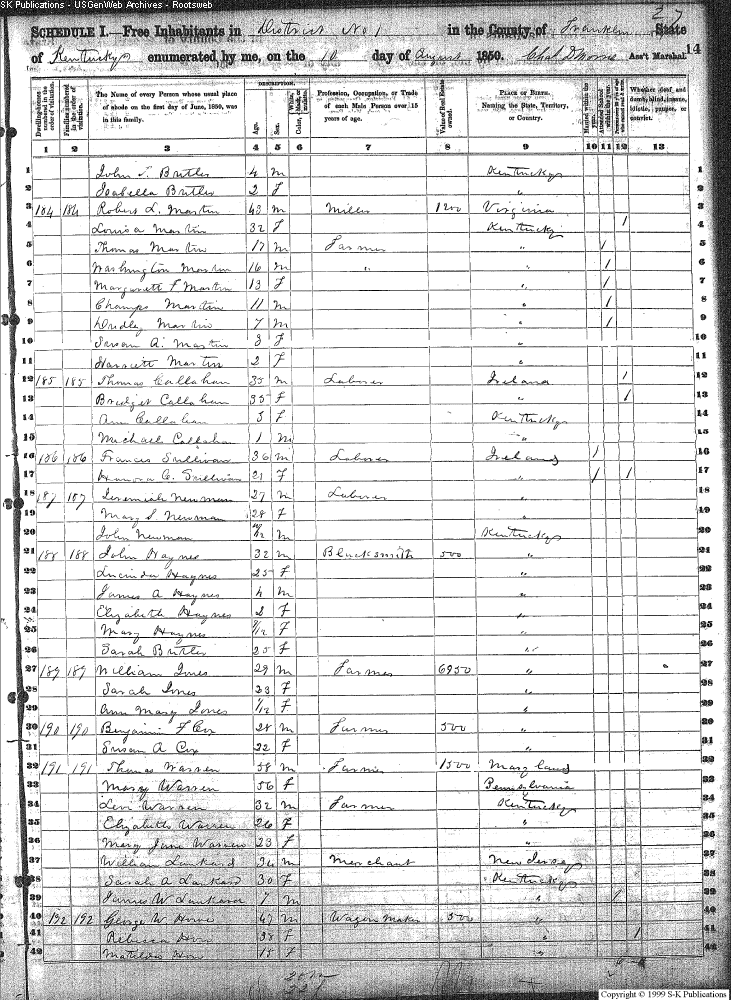 SK Publications - USGenWeb Archives - Rootsweb
27
SCHEDULE I.—Free Inhabitants in District No 1 in the County of Franklin State
of Kentucky enumerated by me, on the 10 day of August 1850. Ass't Marshal 14
DESCRIPTION.
Dwelling-houses numbered in the order of visitation.
Families numbered in the order of visitation.
The Name of every Person whose usual place of abode on the first day of June, 1850, was in this family.
Age.
Sex.
Color, White, black, or mulatto.
Profession, Occupation, or Trade of each Male Person over 15 years of age.
Value of Real Estate owned.
PLACE OF BIRTH. Naming the State, Territory, or Country.
Married within the year.
Attended School within the year.
Whether deaf and dumb, blind, insane, idiotic, pauper, or convict.
1 2 3 4 5 6 7 8 9 10 11 12 13
1 John S. Butler 4 m Kentucky 1
2 Isabella Butler 2 f " 2
3 184 184 Robert L. Martin 43 m Miller 1200 Virginia 3
4 Louisa Martin 32 f Kentucky / 4
5 Thomas Martin 17 m Farmer " / 5
6 Washington Martin 16 m " " / 6
7 Margarett F Martin 13 f " / 7
8 Champ Martin 11 m " / 8
9 Dudley Martin 7 m " / 9
10 Susan A. Martin 3 f " 10
11 Harriett Martin 2 f " 11
12 185 185 Thomas Callahan 35 m Laborer Ireland / 12
13 Bridget Callahan 35 f " / 13
14 Ann Callahan 3 f Kentucky 14
15 Michael Callahan 1 m " 15
16 186 186 Francis Sullivan 36 m Laborer Ireland / 16
17 Hanora C. Sullivan 21 f " / / 17
18 187 187 Jeremiah Newman 27 m Laborer " 18
19 Mary S. Newman 28 f " 19
20 John Newman /12 m Kentucky 20
21 188 188 John Haynes 32 m Blacksmith 500 " 21
22 Lucinda Haynes 25 f " 22
23 James A Haynes 4 m " 23
24 Elizabeth Haynes 2 f " 24
25 Mary Haynes /12 f " 25
26 Sarah Butler 25 f " 26
27 189 189 William Jones 29 m Farmer 6950 " 27
28 Sarah Jones 23 f " 28
29 Ann Mary Jones 1/12 f " 29
30 190 190 Benjamin F Cox 28 m Farmer 500 " 30
31 Susan A Cox 22 f " 31
32 191 191 Thomas Warren 58 m Farmer 1500 Maryland 32
33 Mary Warren 56 f Pennsylvania 33
34 Levi Warren 32 m Farmer Kentucky 34
35 Elizabeth Warren 26 f " 35
36 Mary Jane Warren 23 f " 36
37 William Lankard 34 m Merchant New Jersey 37
38 Sarah A Lankard 30 f Kentucky 38
39 James W Lankard 7 m " / 39
40 192 192 George W 47 m Wagon Maker 500 " 40
41 Rebecca 38 f " / 41
42 Matilda 18 f " 42
Copyright © 1999 S-K Publications